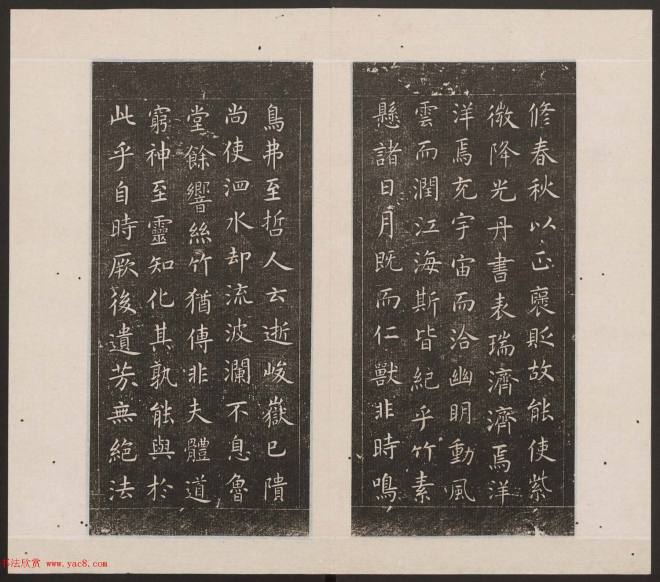 脩春秋以正襃貶故能使紫
微降光丹書表瑞濟濟焉洋
洋焉充宇宙而洽幽明動風
雲而潤江海斯皆紀乎竹素
懸諸日月既而仁獸非時鳴
鳥弗至哲人云逝峻嶽已隤
尚使泗水却流波瀾不息魯
堂餘響絲竹猶傳非夫體道
窮神至靈知化其孰能與於
此乎自時厥後遺芳無絕法
书法欣赏 www.yac8.com